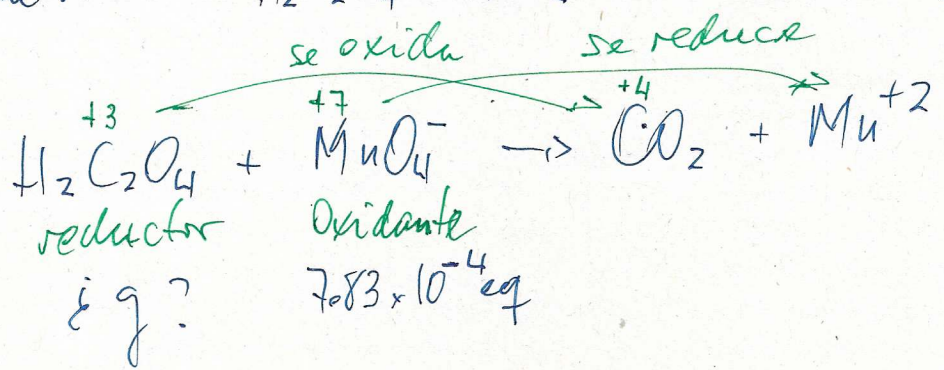 se oxida se reduce
+3 +7 +4
H₂C₂O₄ + MnO₄⁻ → CO₂ + Mn⁺²
reductor Oxidante
¿ g ? 7.83 × 10⁻⁴ eq